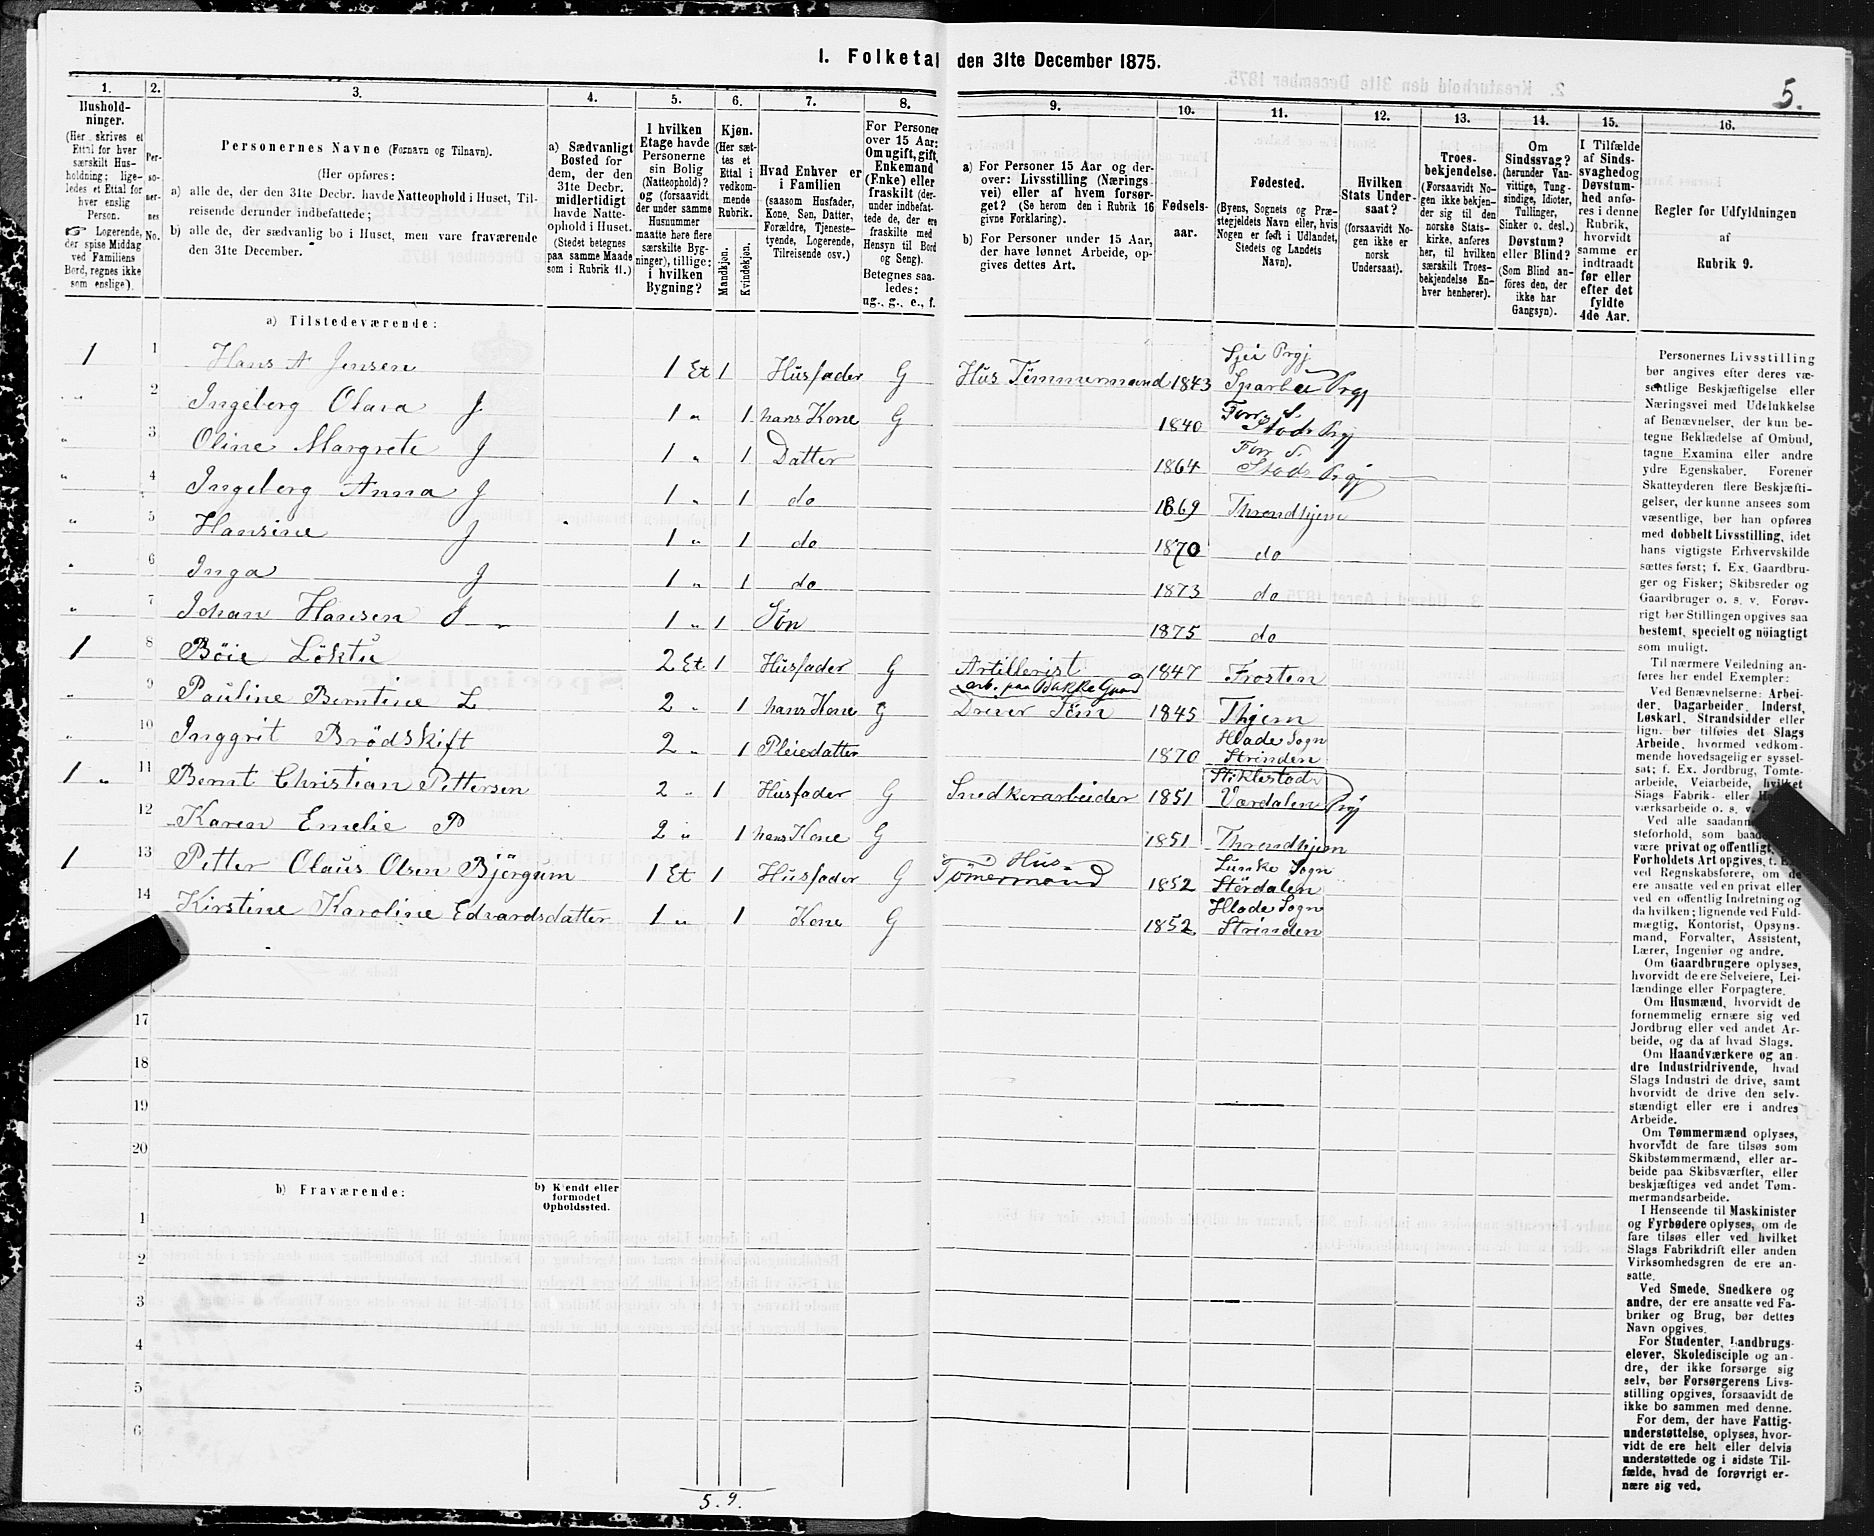 I. Folketal den 31te December 1875.
5.
1. 2. 3. 4. 5. 6. 7. 8. 9. 10. 11. 12. 13. 14. 15. 16.
Hushold-
ninger.
(Her skrives et
Ettal for hver
særskilt Hus-
holdning; lige-
ledes et Ettal for
hver enslig
Person.
☞ Logerende,
der spise Middag
ved Familiens
Bord, regnes ikke
som enslige).
Per-
so-
ner-
nes
No.
Personernes Navne (Fornavn og Tilnavn).
(Her opføres:
a) alle de, der den 31te Decbr. havde Natteophold i Huset, Til-
reisende derunder indbefattede;
b) alle de, der sædvanlig bo i Huset, men vare fraværende
den 31te December.
a) Sædvanligt
Bosted for
dem, der den
31te Decbr.
midlertidigt
havde Natte-
ophold i Huset.
(Stedet betegnes
paa samme Maade
som i Rubrik 11.)
I hvilken
Etage havde
Personerne
sin Bolig
(Natteophold)?
og (forsaavidt
der under samme
Husnummer
maatte høre flere
særskilte Byg-
ninger), tillige:
i hvilken
Bygning?
Kjøn.
(Her sæt-
tes et
Ettal i
vedkom-
mende
Rubrik.
Mandkjøn.
Kvindekjøn.
Hvad Enhver er
i Familien
(saasom Husfader,
Kone, Søn, Datter,
Forældre, Tjeneste-
tyende, Logerende,
Tilreisende osv.)
For Personer
over 15 Aar:
Om ugift, gift,
Enkemand
(Enke) eller
fraskilt (der-
under indbefat-
tede de, der ere
fraskilte med
Hensyn til Bord
og Seng).
Betegnes saa-
ledes:
ug., g., e., f.
a) For Personer 15 Aar og der-
over: Livsstilling (Nærings-
vei) eller af hvem forsør-
get? (Se herom den i Rubrik 16
givne Forklaring).
b) For Personer under 15 Aar,
der have lønnet Arbeide, op-
gives dettes Art.
Fødsels-
aar.
Fødested.
(Byens, Sognets og Præ-
stegjeldets Navn eller, hvis
Nogen er født i Udlandet,
Stedets og Landets
Navn).
Hvilken
Stats Under-
saat?
(forsaavidt No-
gen ikke er
norsk
Undersaat).
Troes-
bekjendelse.
(Forsaavidt No-
gen ikke bekjen-
der sig til den
norske Stats-
kirke, anføres
her, til hvilken
særskilt Troes-
bekjendelse En-
hver henhører).
Om
Sindssvag?
(herunder Van-
vittige, Tung-
sindige, Idioter,
Tullinger,
Sinker o. desl.)
Døvstum?
eller Blind?
(Som Blind an-
føres den, der
ikke har
Gangsyn).
I Tilfælde
af Sinds-
svaghed og
Døvstum-
hed anfø-
res i denne
Rubrik,
hvorvidt
samme er
indtraadt
før eller
efter det
fyldte
4de Aar.
Regler for Udfyldningen
af
Rubrik 9.
a) Tilstedeværende:
1 1 Hans A Jensen 1 Et 1 Husfader G Hus Tømmermand 1843 Sparbu Prgj
2 Ingeberg Olava J 1 " 1 hans Kone G 1840 Stods Prgj
3 Oline Margrete J 1 " 1 Datter 1864 Stods Prgj
4 Ingeberg Anna J 1 " 1 do 1869 Throndhjem
5 Hansine J 1 " 1 do 1870 do
6 Inga J 1 " 1 do 1873 do
7 Johan Hansen J 1 " 1 Søn 1875 do
1 8 Böie Löktu 2 Et 1 Husfader G Artillerist 1847 Frosten
arb. paa Bakke Gaard
9 Pauline Berntine L 2 " 1 hans Kone G 1845 Thjem
10 Inggrit Brödskift 2 " 1 Pleiedatter 1870 Hlade Sogn
Strinden
1 11 Bernt Christian Pettersen 2 " 1 Husfader G Snedkerarbeider 1851 Stiklestad
Værdalen Prgj
12 Karen Emelie P 2 " 1 hans Kone G 1851 Throndhjem
1 13 Petter Olaus Olsen Björgum 1 Et 1 Husfader G Hus
Tömermand 1852 Lunke Sogn
Stördalen
14 Kirstine Karoline Edvardsdatter 1 " 1 Kone G 1852 Hlade Sogn
Strinden
17
18
19
20
b) Fraværende:
b) Kjendt eller
formodet
Opholdssted.
1
2
3
4
5
6
5. 9.
Personernes Livsstilling
bør angives efter deres væ-
sentlige Beskjæftigelse eller
Næringsvei med Udelukkelse
af Benævnelser, der kun be-
tegne Beklædelse af Ombud,
tagne Examina eller andre
ydre Egenskaber. Forener
Skatteyderen flere Beskjæfti-
gelser, der kunne ansees som
væsentlige, bør han opføres
med dobbelt Livsstilling, idet
hans vigtigste Erhvervskilde
sættes først; f. Ex. Gaardbru-
ger og Fisker; Skibsreder og
Gaardbruger o. s. v. Forøv-
rigt bør Stillingen opgives saa
bestemt, specielt og nöiagtigt
som muligt.
Til nærmere Veiledning an-
føres her endel Exempler:
Ved Benævnelserne: Arbei-
der, Dagarbeider, Inderst,
Løskarl, Strandsidder eller
lign. bør tilføies det Slags
Arbeide, hvormed vedkom-
mende hovedsagelig er syssel-
sat; f. Ex. Jordbrug, Tomte-
arbeide, Veiarbeide, hvilket
Slags Fabrik- eller
værksarbeide o. s. v.
Ved alle saadan
steforhold, som baade
være privat og offentligt,
Forholdets Art opgives, t. Ex.
ved Regnskabsførere, om de
ere ansatte ved en privat eller
ved en offentlig Indretning og
da hvilken; lignende ved Fuld-
mægtig, Kontorist, Opsyns-
mand, Forvalter, Assistent,
Lærer, Ingeniør og andre.
Om Gaardbrugere oplyses,
hvorvidt de ere Selveiere, Lei-
lændinge eller Forpagtere.
Om Husmænd, hvorvidt de
fornemmelig ernære sig ved
Jordbrug eller ved andet Ar-
beide, og da af hvad Slags.
Om Haandværkere og an-
dre Industridrivende, hvad
Slags Industri de drive, samt
hvorvidt de drive den selv-
stændigt eller ere i andres
Arbeide.
Om Tømmermænd oplyses,
hvorvidt de fare tilsøs som
Skibstømmermænd, eller ar-
beide paa Skibsværfter, eller
beskjæftiges ved andet Tøm-
mermandsarbeide.
I Henseende til Maskinister
og Fyrbødere oplyses, om de
fare tilsøs eller ved hvilket
Slags Fabrikdrift eller anden
Virksomhedsgren de ere an-
satte.
Ved Smede, Snedkere og
andre, der ere ansatte ved Fa-
briker og Brug, bør dettes
Navn opgives.
For Studenter, Landbrugs-
elever, Skoledisciple og an-
dre, der ikke forsørge sig
selv, bør Forsørgerens Livs-
stilling opgives, forsaavidt de
ikke bo sammen med denne.
For dem, der have Fattig-
understøttelse, oplyses, hvor-
vidt de ere helt eller delvis
understøttede og i sidste Til-
fælde, hvad de forøvrigt er-
nære sig ved.